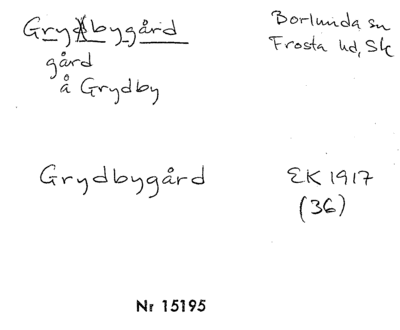 Grydbygård
gård
å Grydby
Borlunda sn
Frosta hd, Sk
Grydbygård
EK 1917
(36)
Nr 15195